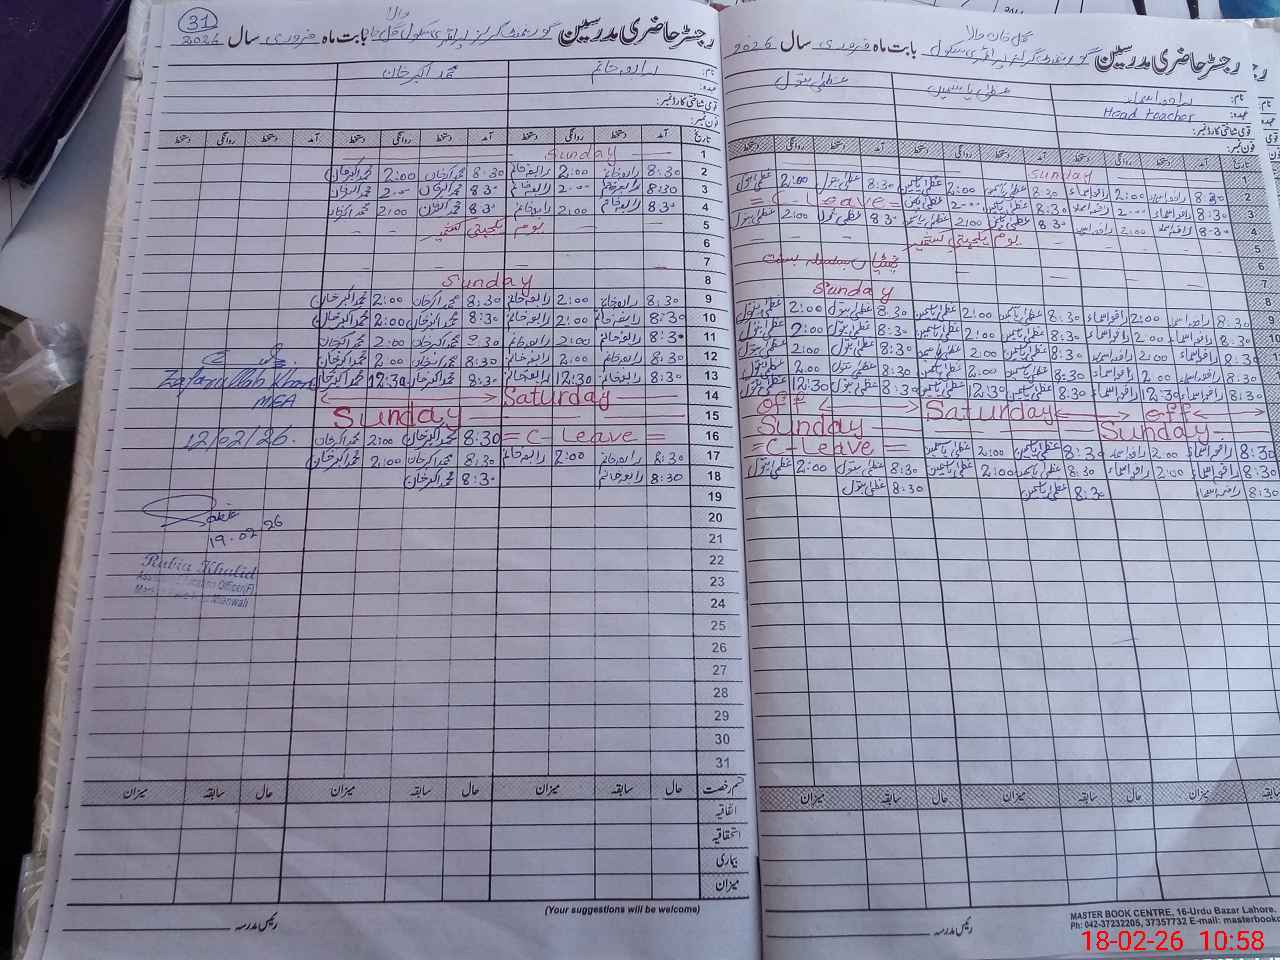 31
رجسٹر حاضری مدرسین گورنمنٹ گرلز پرائمری سکول گل خان والا بابت ماہ فروری سال 2026
نام: رابعہ خانم محمد اکبر خان
عہدہ:
قومی شناختی کارڈ نمبر:
فون نمبر:
تاریخ آمد دستخط روانگی دستخط آمد دستخط روانگی دستخط آمد دستخط روانگی دستخط
1 Sunday
2 8:30 رابعہ خانم 2:00 رابعہ خانم 8:30 محمد اکبر خان 2:00 محمد اکبر خان
3 8:30 رابعہ خانم 2:00 رابعہ خانم 8:30 محمد اکبر خان 2:00 محمد اکبر خان
4 8:30 رابعہ خانم 2:00 رابعہ خانم 8:30 محمد اکبر خان 2:00 محمد اکبر خان
5 یوم یکجہتی کشمیر
6
7
8 Sunday
9 8:30 رابعہ خانم 2:00 رابعہ خانم 8:30 محمد اکبر خان 2:00 محمد اکبر خان
10 8:30 رابعہ خانم 2:00 رابعہ خانم 8:30 محمد اکبر خان 2:00 محمد اکبر خان
11 8:30 رابعہ خانم 2:00 رابعہ خانم 8:30 محمد اکبر خان 2:00 محمد اکبر خان
12 8:30 رابعہ خانم 2:00 رابعہ خانم 8:30 محمد اکبر خان 2:00 محمد اکبر خان
13 8:30 رابعہ خانم 12:30 رابعہ خانم 8:30 محمد اکبر خان 12:30 محمد اکبر خان
14 Saturday
15 Sunday
16 = C-Leave = 8:30 محمد اکبر خان 2:00 محمد اکبر خان
17 8:30 رابعہ خانم 2:00 رابعہ خانم 8:30 محمد اکبر خان 2:00 محمد اکبر خان
18 8:30 رابعہ خانم 8:30 محمد اکبر خان
19
20
21
22
23
24
25
26
27
28
29
30
31
Zafarullah Khan
MEA
12/02/26.
19.02.26
Rubia Khalid
قسم رخصت حال سابقہ میزان حال سابقہ میزان حال سابقہ میزان
اتفاقیہ
استحقاقیہ
بیماری
میزان
(Your suggestions will be welcome)
رئیس مدرسہ
رجسٹر حاضری مدرسین گورنمنٹ گرلز پرائمری سکول گل خان والا بابت ماہ فروری سال 2026
نام: رافعہ اسماء عظمیٰ یاسمین عظمیٰ بتول
عہدہ: Head teacher
قومی شناختی کارڈ نمبر:
فون نمبر:
تاریخ آمد دستخط روانگی دستخط آمد دستخط روانگی دستخط آمد دستخط روانگی دستخط
1 Sunday
2 8:30 رافعہ اسماء 2:00 رافعہ اسماء 8:30 عظمیٰ یاسمین 2:00 عظمیٰ یاسمین 8:30 عظمیٰ بتول 2:00 عظمیٰ بتول
3 8:30 رافعہ اسماء 2:00 رافعہ اسماء 8:30 عظمیٰ یاسمین 2:00 عظمیٰ یاسمین = C-Leave =
4 8:30 رافعہ اسماء 2:00 رافعہ اسماء 8:30 عظمیٰ یاسمین 2:00 عظمیٰ یاسمین 8:30 عظمیٰ بتول 2:00 عظمیٰ بتول
5 یوم یکجہتی کشمیر
6 چھٹیاں بسلسلہ بسنت
7
8 Sunday
9 8:30 رافعہ اسماء 2:00 رافعہ اسماء 8:30 عظمیٰ یاسمین 2:00 عظمیٰ یاسمین 8:30 عظمیٰ بتول 2:00 عظمیٰ بتول
10 8:30 رافعہ اسماء 2:00 رافعہ اسماء 8:30 عظمیٰ یاسمین 2:00 عظمیٰ یاسمین 8:30 عظمیٰ بتول 2:00 عظمیٰ بتول
8:30 رافعہ اسماء 2:00 رافعہ اسماء 8:30 عظمیٰ یاسمین 2:00 عظمیٰ یاسمین 8:30 عظمیٰ بتول 2:00 عظمیٰ بتول
8:30 رافعہ اسماء 2:00 رافعہ اسماء 8:30 عظمیٰ یاسمین 2:00 عظمیٰ یاسمین 8:30 عظمیٰ بتول 2:00 عظمیٰ بتول
8:30 رافعہ اسماء 12:30 رافعہ اسماء 8:30 عظمیٰ یاسمین 12:30 عظمیٰ یاسمین 8:30 عظمیٰ بتول 12:30 عظمیٰ بتول
off Saturday off
Sunday Sunday
8:30 رافعہ اسماء 2:00 رافعہ اسماء 8:30 عظمیٰ یاسمین 2:00 عظمیٰ یاسمین = C-Leave =
8:30 رافعہ اسماء 2:00 رافعہ اسماء 8:30 عظمیٰ یاسمین 2:00 عظمیٰ یاسمین 8:30 عظمیٰ بتول 2:00 عظمیٰ بتول
8:30 رافعہ اسماء 8:30 عظمیٰ یاسمین 8:30 عظمیٰ بتول
سابقہ میزان حال سابقہ میزان حال سابقہ میزان
رئیس مدرسہ
MASTER BOOK CENTRE, 16-Urdu Bazar Lahore.
Ph: 042-37232205, 37357732 E-mail: masterbookc
18-02-26 10:58